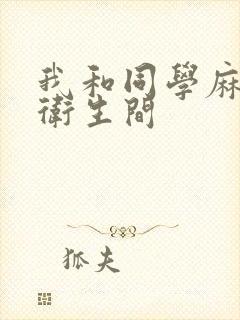 我和同學麻
衛生間
狐夫